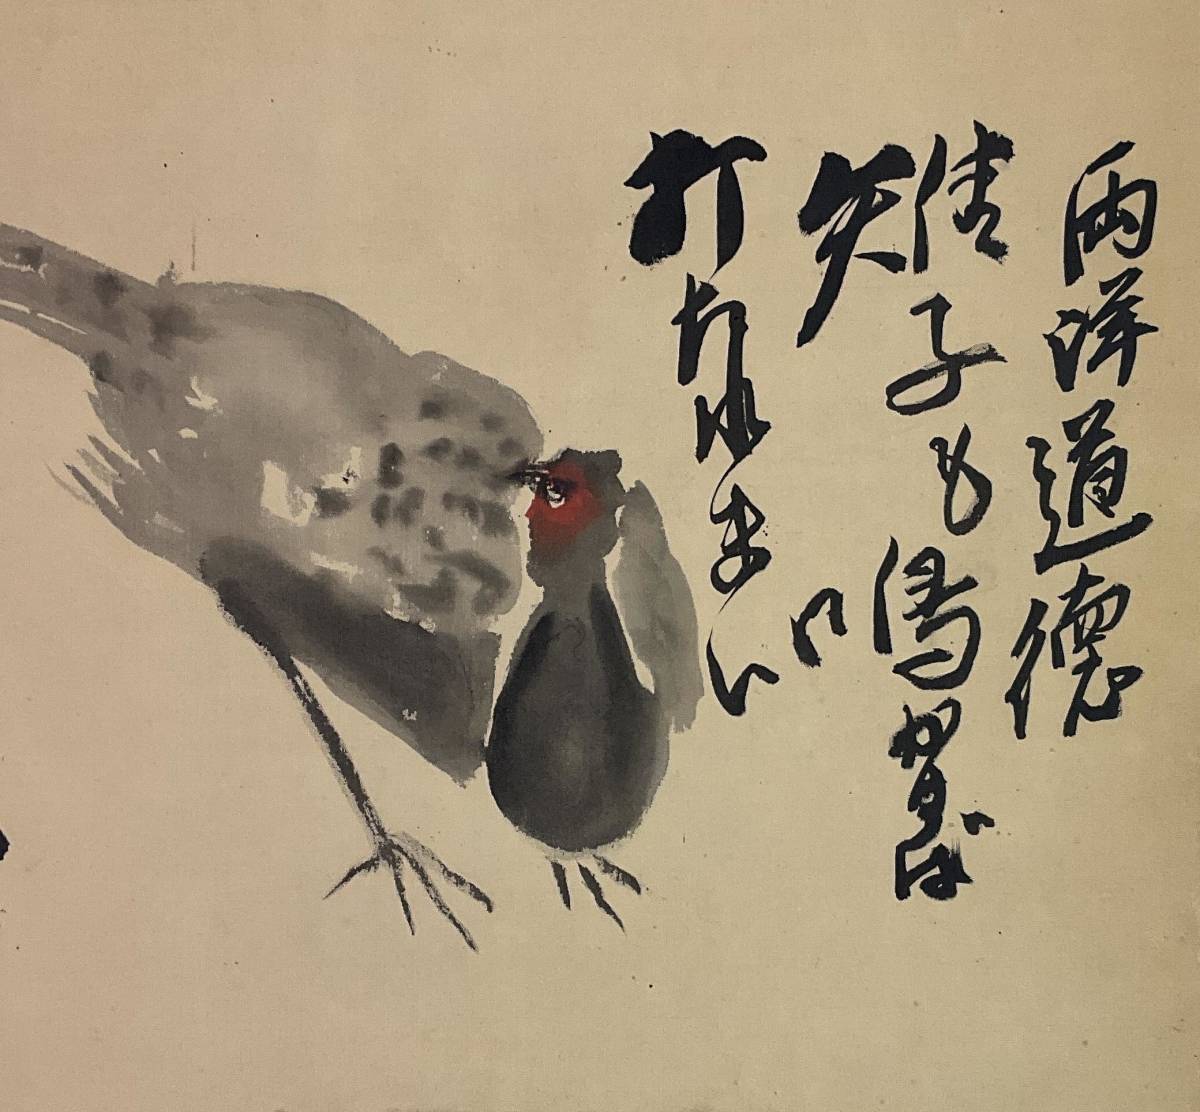 両洋道徳
雉子も鳴かずば
打たれまい